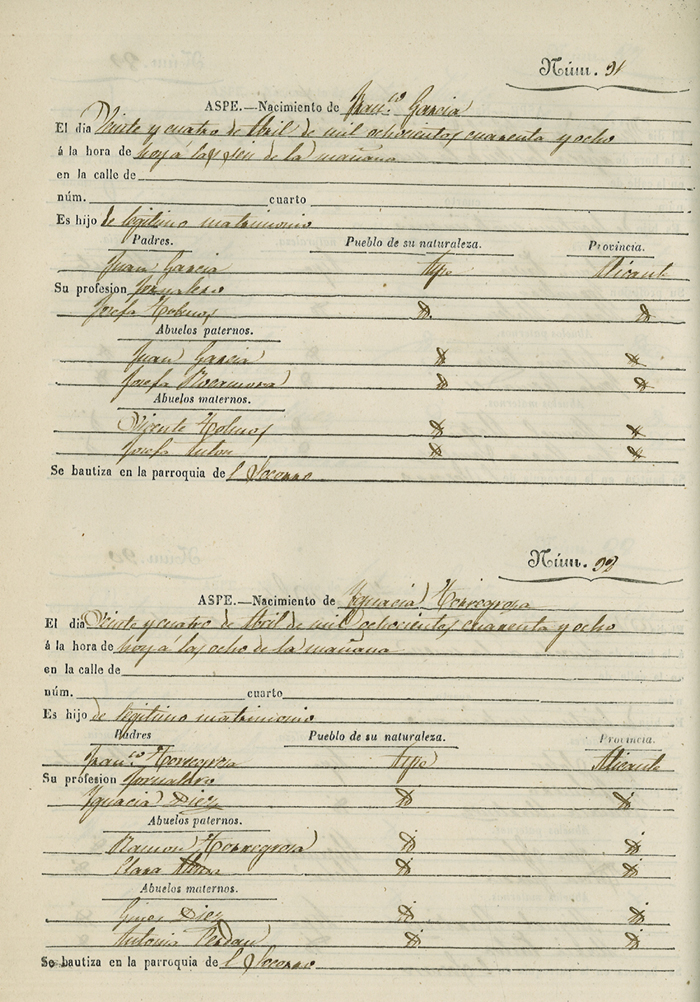 Núm. 91
ASPE.—Nacimiento de Fran.co Garcia
El dia Veinte y cuatro de Abril de mil ochocientos cuarenta y ocho
á la hora de hoy á las seis de la mañana
en la calle de
núm. cuarto
Es hijo de legitimo matrimonio
Padres. Pueblo de su naturaleza. Provincia.
Juan Garcia Aspe Alicante
Su profesion Jornalero
Josefa
Abuelos paternos.
Juan Garcia
Josefa Rocamora
Abuelos maternos.
Vicente
Josefa Anton
Se bautiza en la parroquia de l Socorro
Núm. 92
ASPE.—Nacimiento de Ygnacia Torregrosa
El dia Veinte y cuatro de Abril de mil ochocientos cuarenta y ocho
á la hora de hoy á las ocho de la mañana
en la calle de
núm. cuarto
Es hijo de legitimo matrimonio
Padres Pueblo de su naturaleza. Provincia.
Fran.co Torregrosa Aspe Alicante
Su profesion Jornalero
Ygnacia Diez
Abuelos paternos.
Ramon Torregrosa
Clara
Abuelos maternos.
Gines Diez
Antonia
Se bautiza en la parroquia de l Socorro